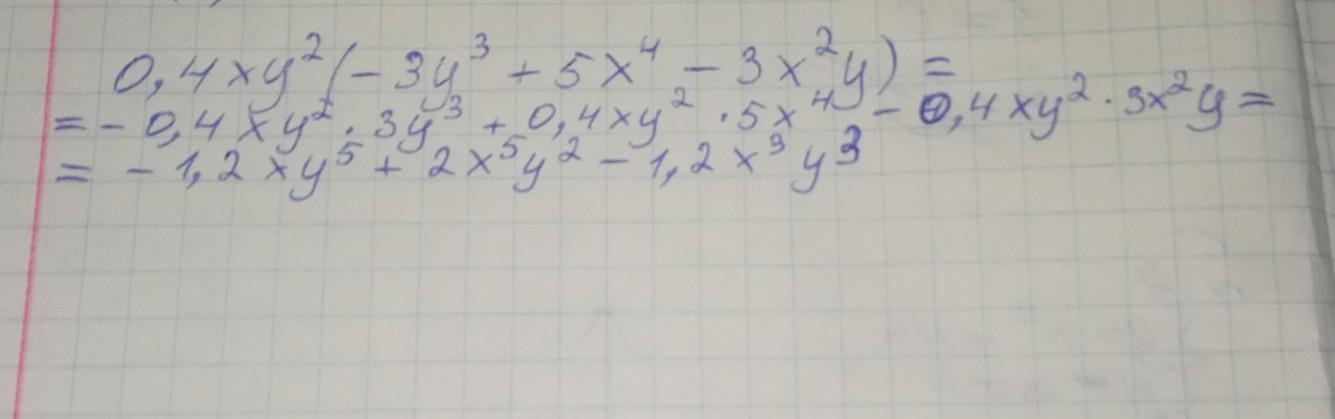 0,4xy²(-3y³ + 5x⁴ - 3x²y) =
= - 0,4xy² · 3y³ + 0,4xy² · 5x⁴ - 0,4xy² · 3x²y =
= - 1,2xy⁵ + 2x⁵y² - 1,2x³y³